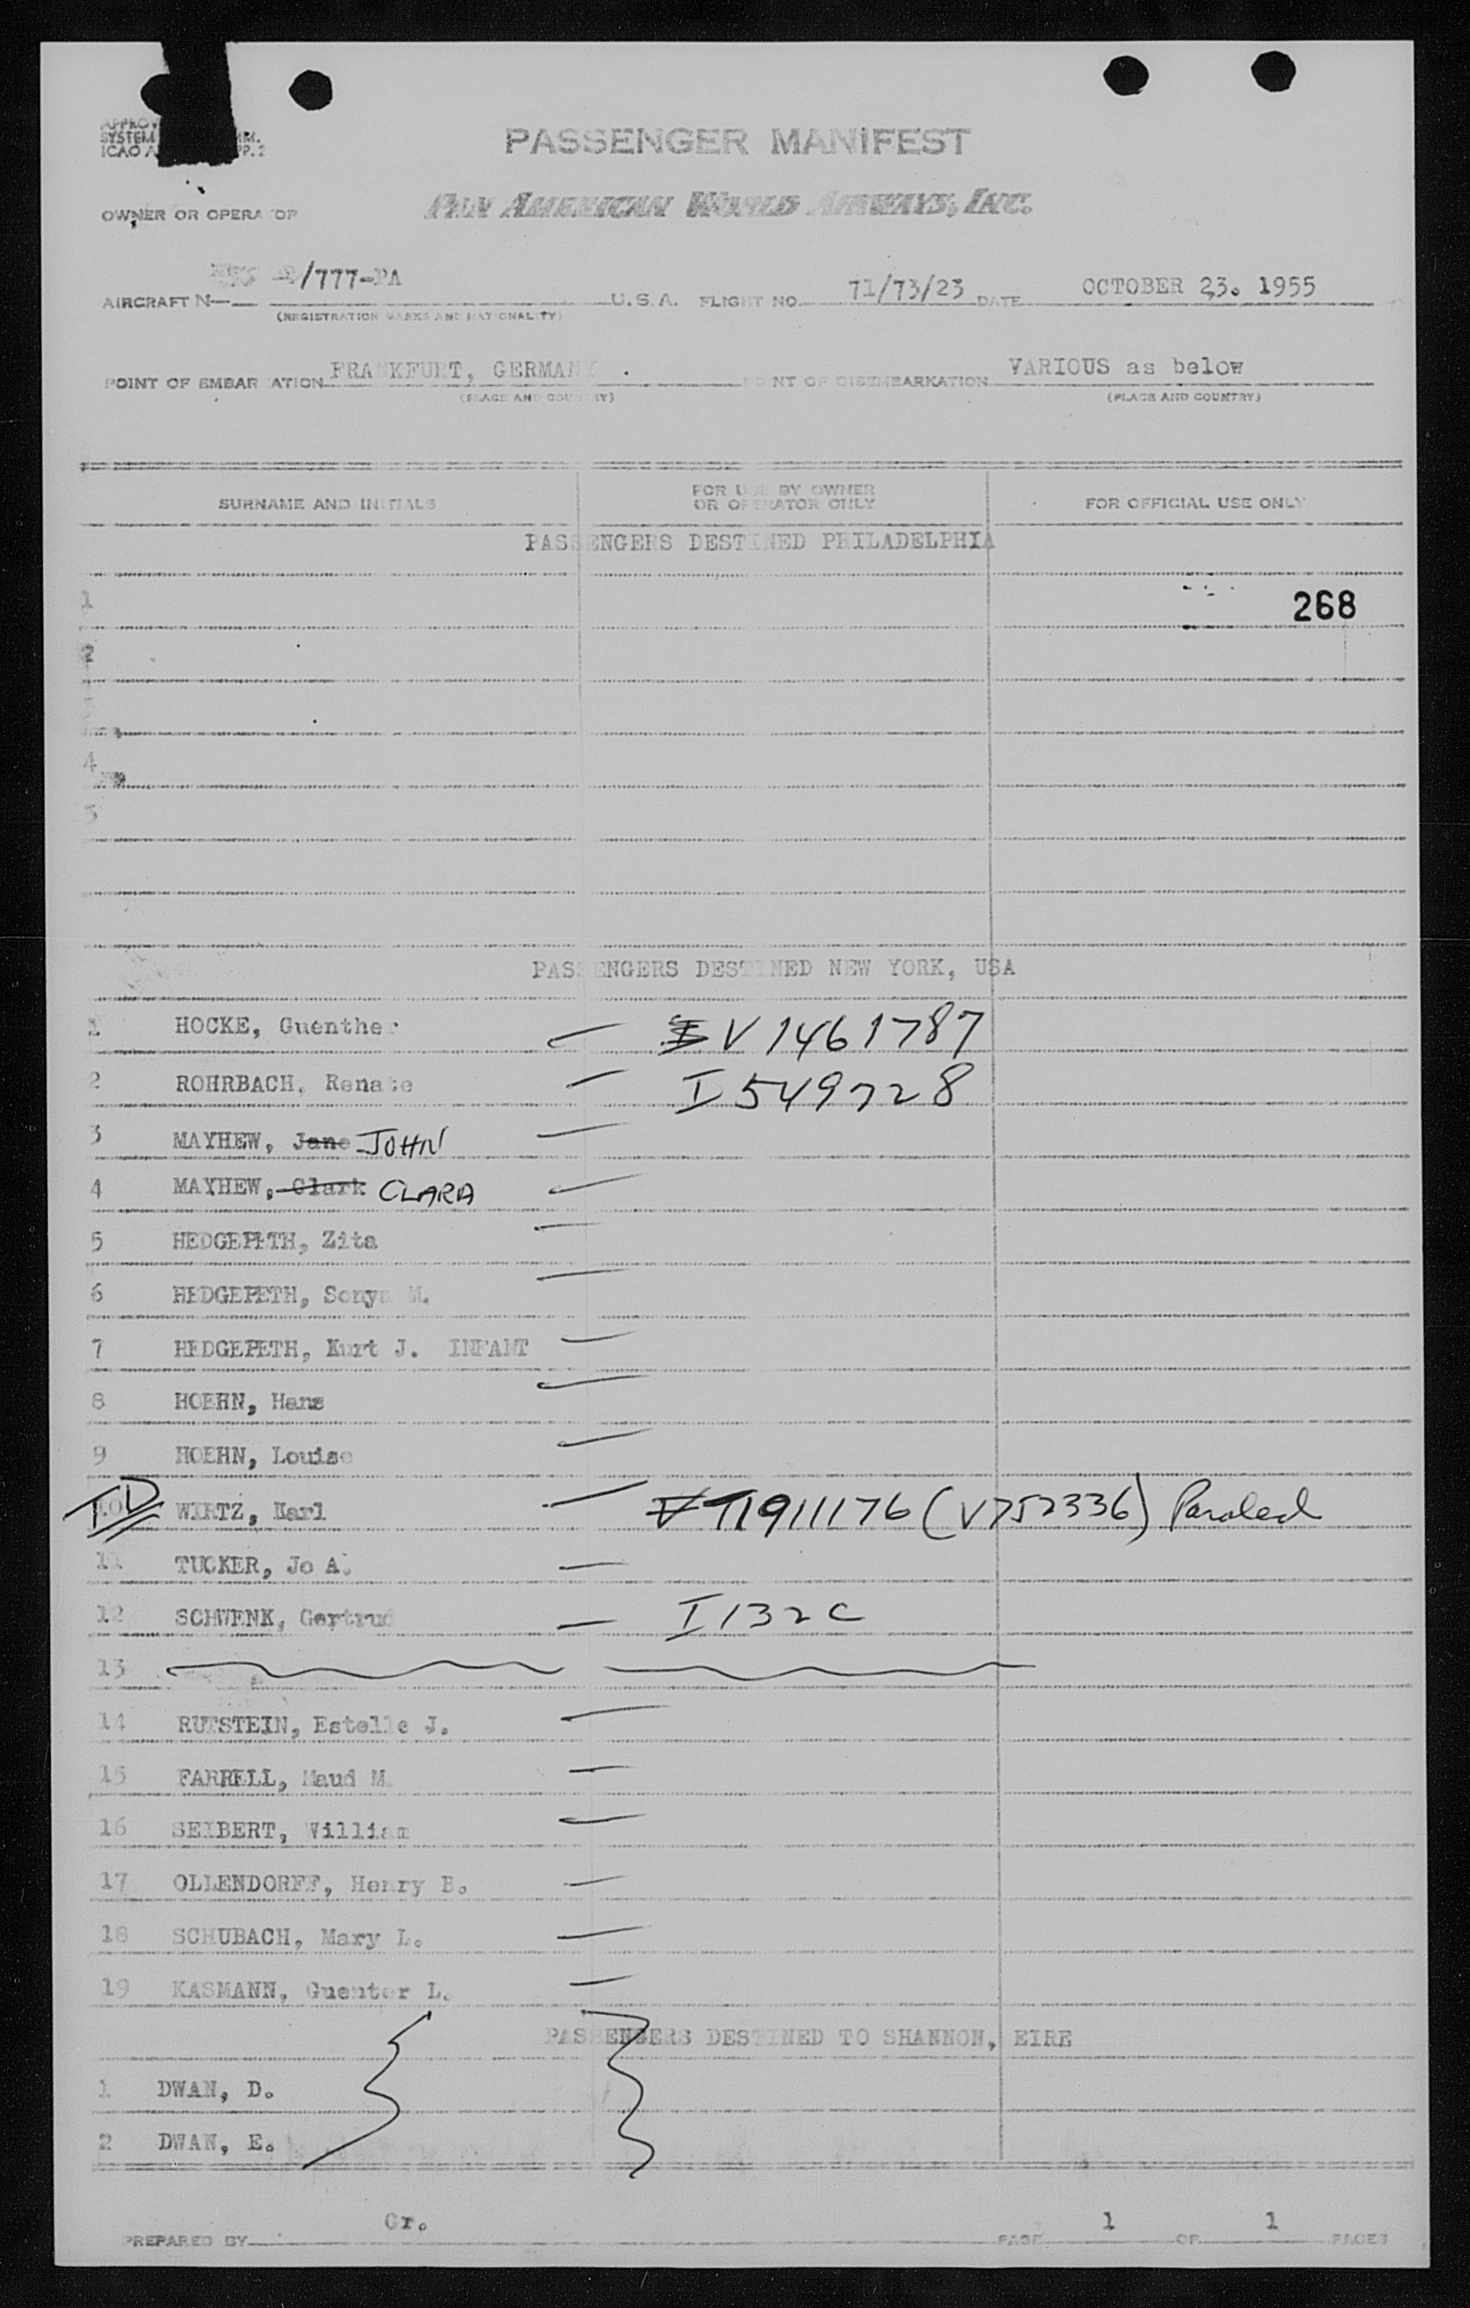 PASSENGER MANIFEST
OWNER OR OPERATOR PAN AMERICAN WORLD AIRWAYS, INC.
AIRCRAFT N— /777-PA U.S.A. FLIGHT NO. 71/73/23 DATE OCTOBER 23. 1955
(REGISTRATION MARKS AND NATIONALITY)
POINT OF EMBARKATION FRANKFURT, GERMANY. POINT OF DISEMBARKATION VARIOUS as below
(PLACE AND COUNTRY) (PLACE AND COUNTRY)
SURNAME AND INITIALS FOR USE BY OWNER OR OPERATOR ONLY FOR OFFICIAL USE ONLY
PASSENGERS DESTINED PHILADELPHIA
1 268
2
3
4
5
PASSENGERS DESTINED NEW YORK, USA
1 HOCKE, Guenther V1461787
2 ROHRBACH, Renate I549728
3 MAYHEW, Jane JOHN
4 MAYHEW, Clark CLARA
5 HEDGEPETH, Zita
6 HEDGEPETH, Sonya M.
7 HEDGEPETH, Kurt J. INFANT
8 HOEHN, Hans
9 HOEHN, Louise
10 WIRTZ, Karl T1911176 (V752336) Paroled
11 TUCKER, Jo A.
12 SCHWENK, Gertrud I132C
13
14 RUTSTEIN, Estelle J.
15 FARRELL, Maud M.
16 SEIBERT, William
17 OLLENDORFF, Henry B.
18 SCHUBACH, Mary L.
19 KASMANN, Guenter L.
PASSENGERS DESTINED TO SHANNON, EIRE
1 DWAN, D.
2 DWAN, E.
PREPARED BY Gr. PAGE 1 OF 1 PAGES